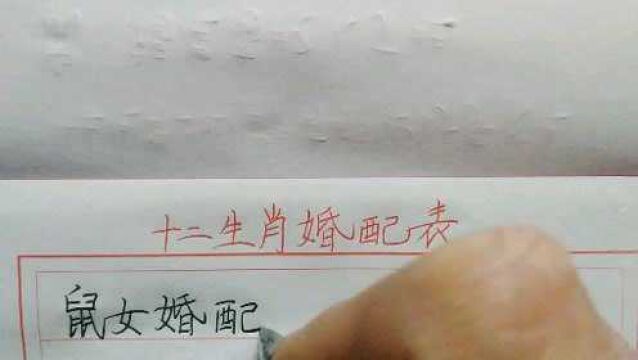 十二生肖婚配表
鼠女婚配